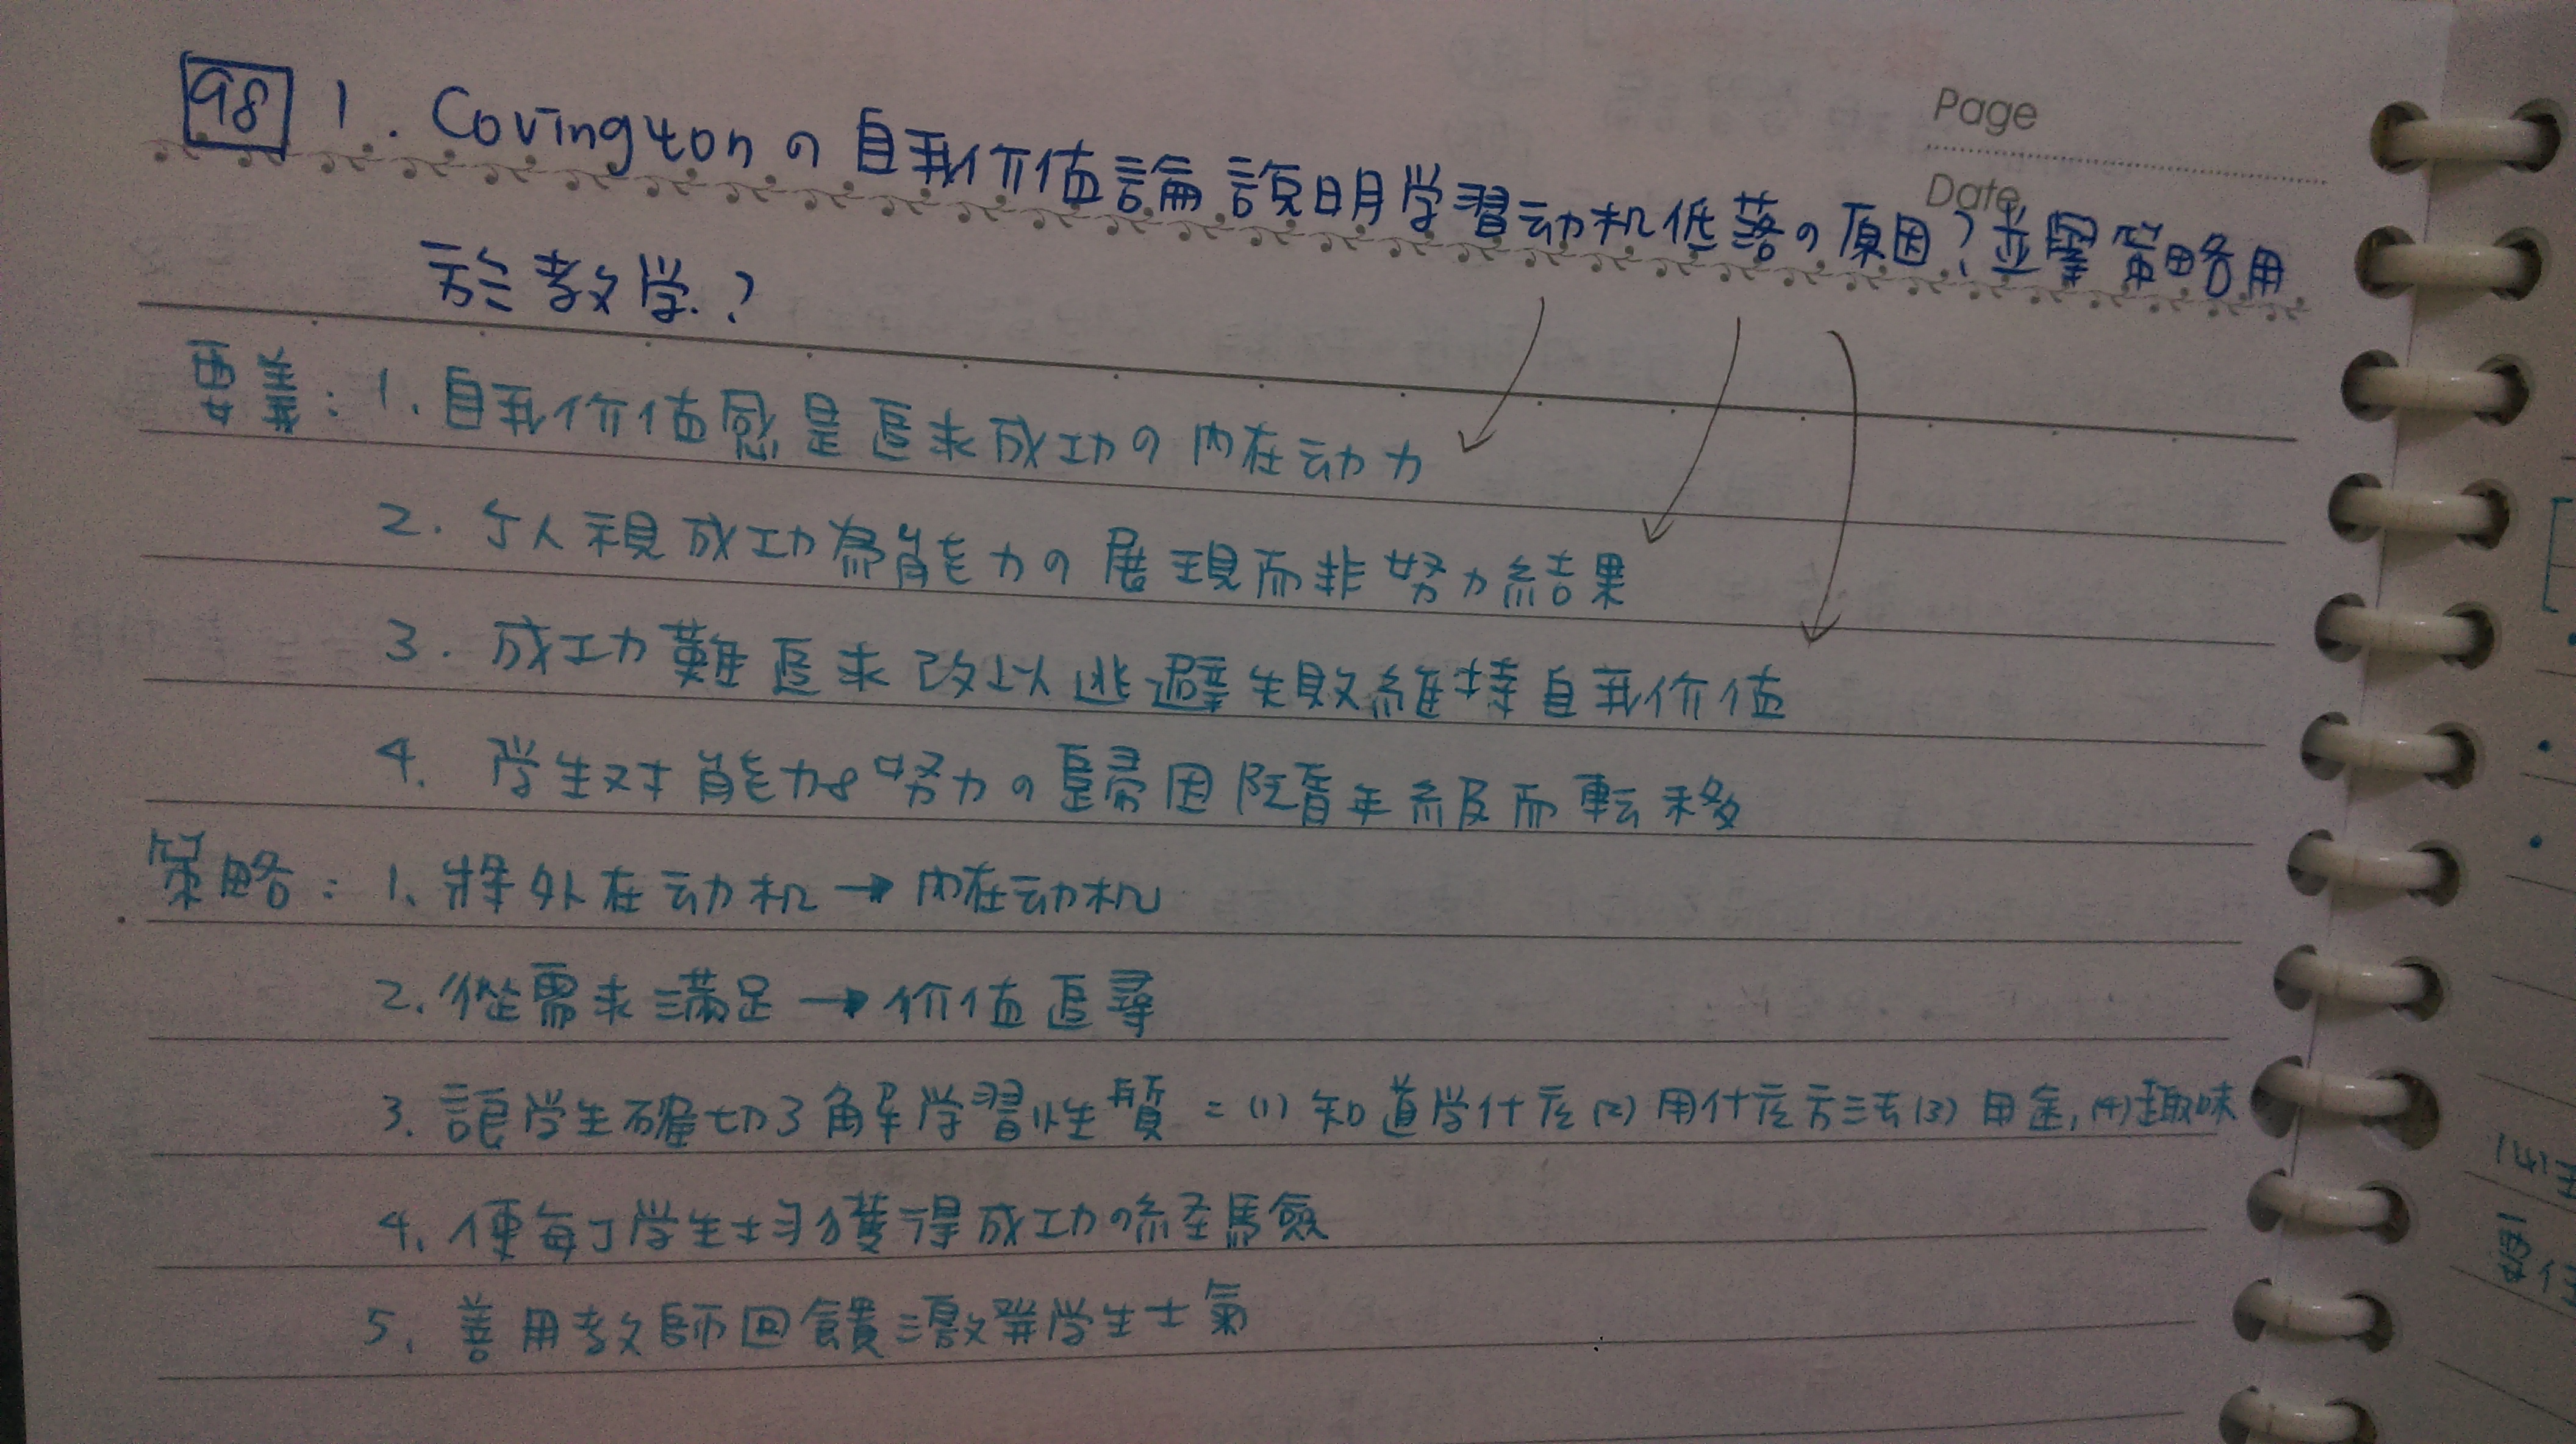 98 1. Covington の 自我价值論 說明学習动机低落の原因？並舉策略用
於教学？
Page
Date
要義：1. 自我价值感是追求成功の内在动力
2. 个人視成功為能力の展現而非努力結果
3. 成功難追求改以逃避失敗維持自我价值
4. 学生对能力&努力の歸因隨年級而転移
策略：1. 將外在动机→内在动机
2. 從需求滿足→价值追尋
3. 讓学生確切了解学習性質：(1) 知道学什麼 (2) 用什麼方法 (3) 用途, (4) 趣味
4. 使每个学生均獲得成功の経驗
5. 善用教師回饋激発学生士氣